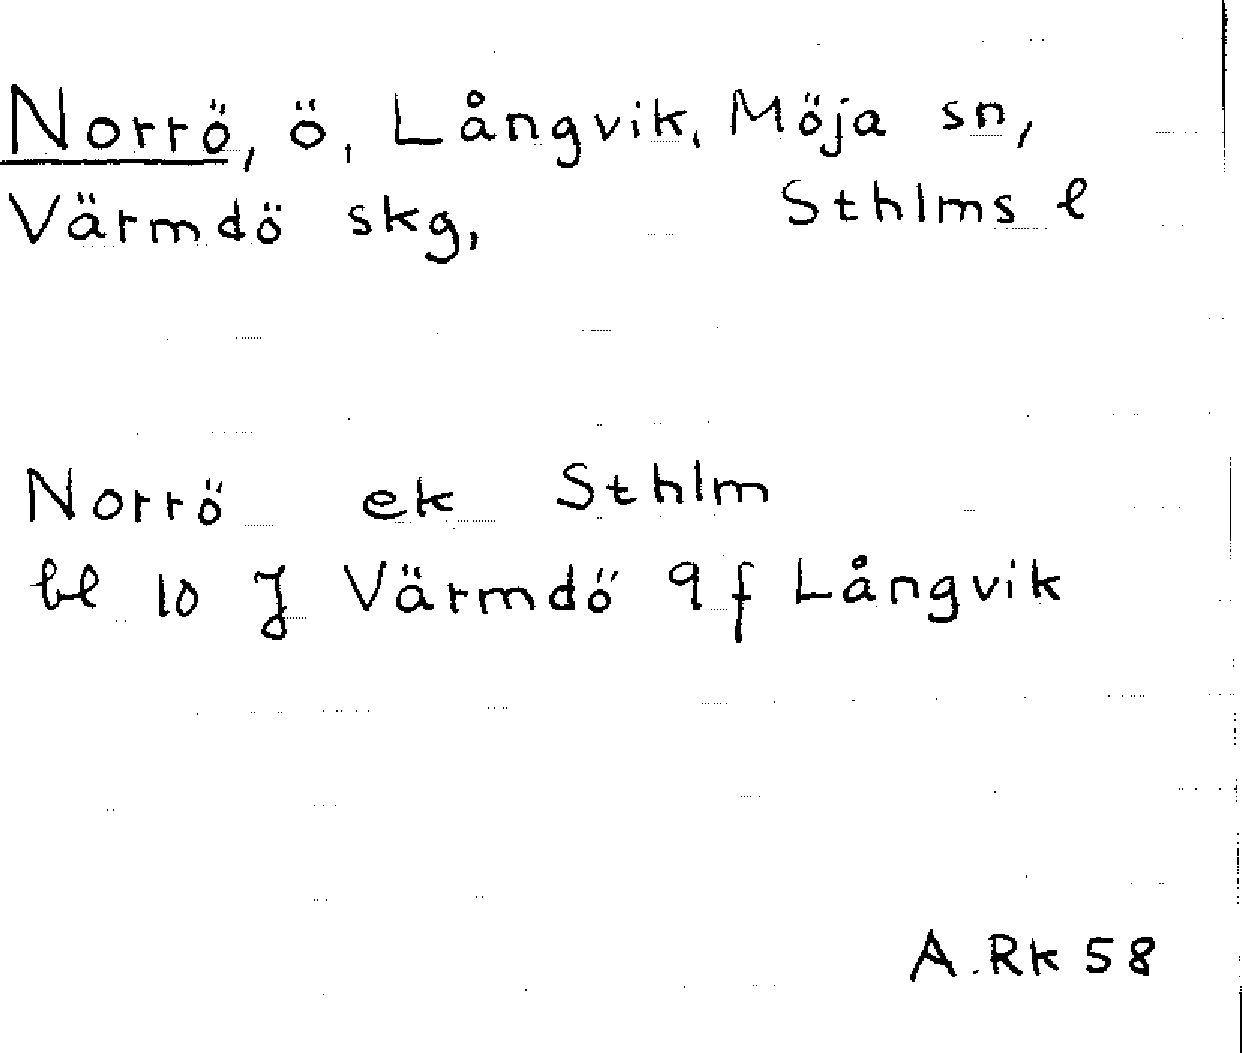 Norrö, ö, Långvik, Möja sn,
Värmdö skg, Sthlms l
Norrö ek Sthlm
bl 10 J Värmdö 9 f Långvik
A.Rk 58